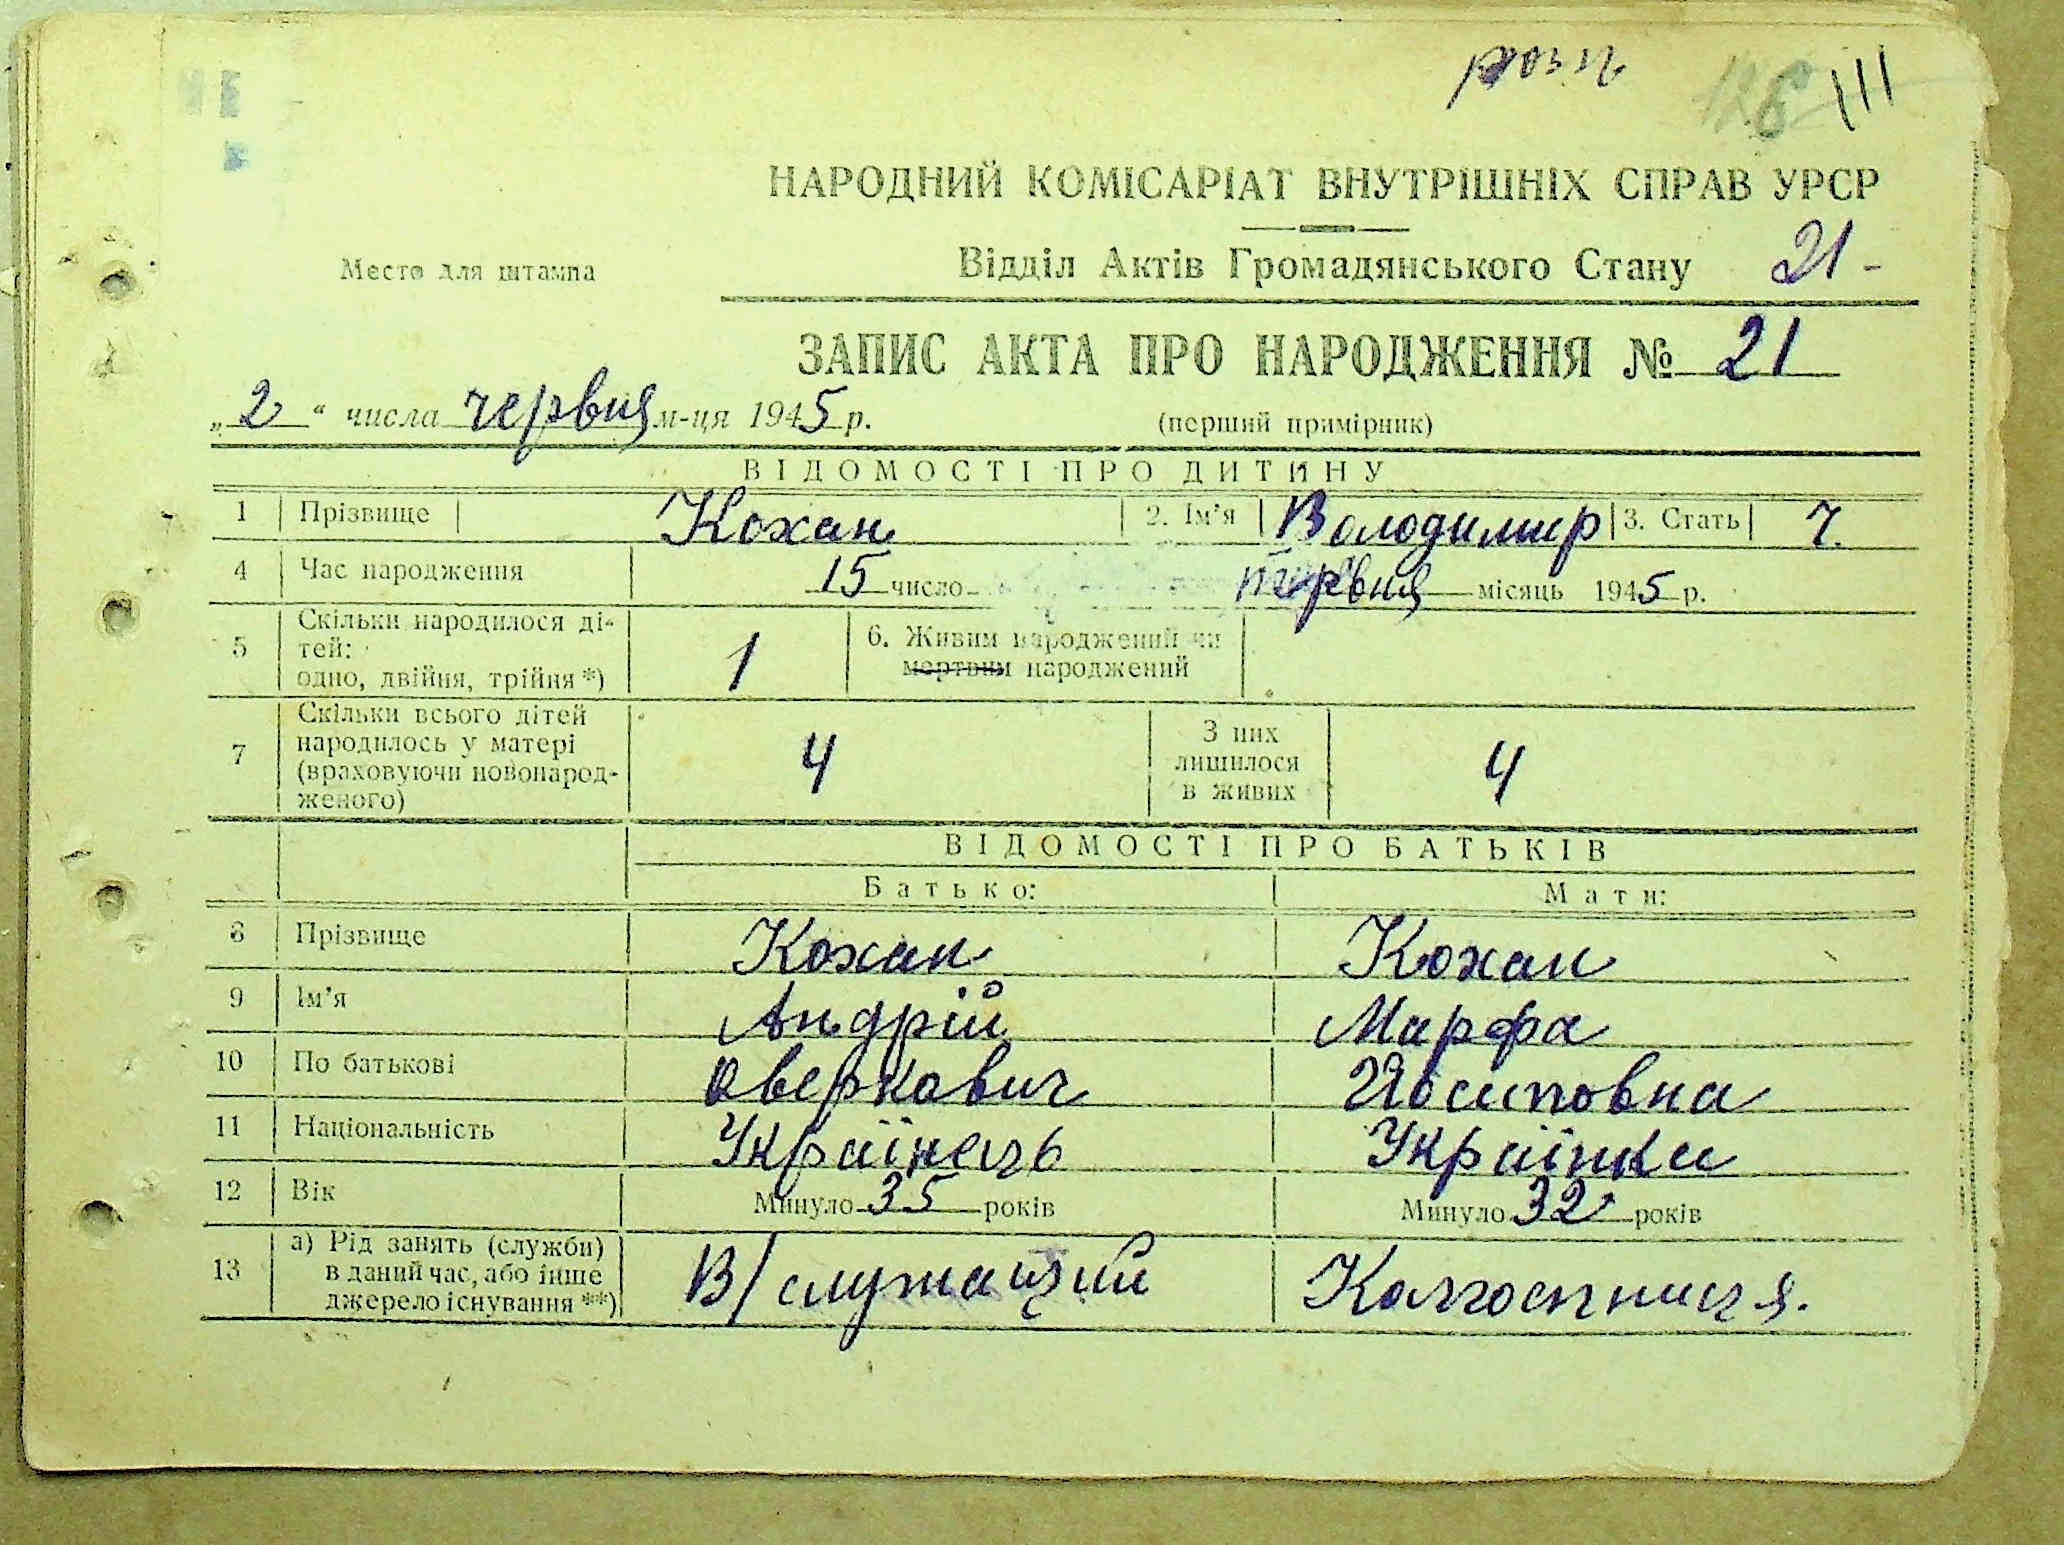 III
НАРОДНИЙ КОМІСАРІАТ ВНУТРІШНІХ СПРАВ УРСР
Место для штампа
Відділ Актів Громадянського Стану 21-
ЗАПИС АКТА ПРО НАРОДЖЕННЯ № 21
„2“ числа червня м-ця 1945 р. (перший примірник)
ВІДОМОСТІ ПРО ДИТИНУ
1 Прізвище Кохан 2. Ім’я Володимир 3. Стать Ч.
4 Час народження 15 число місяць 1945 р.
5 Скільки народилося ді-
тей:
одно, двійня, трійня *) 1 6. Живим народжений чи
мертвим народжений
7 Скільки всього дітей
народилось у матері
(враховуючи новонарод-
женого) 4 З них
лишилося
в живих 4
ВІДОМОСТІ ПРО БАТЬКІВ
Батько: Мати:
8 Прізвище Кохан Кохан
9 Ім’я Андрій Марфа
10 По батькові Оверкович Йосиповна
11 Національність Українець Українка
12 Вік Минуло 35 років Минуло 32 років
13 а) Рід занять (служби)
в даний час, або інше
джерело існування **) В/служащий Колгоспниця.